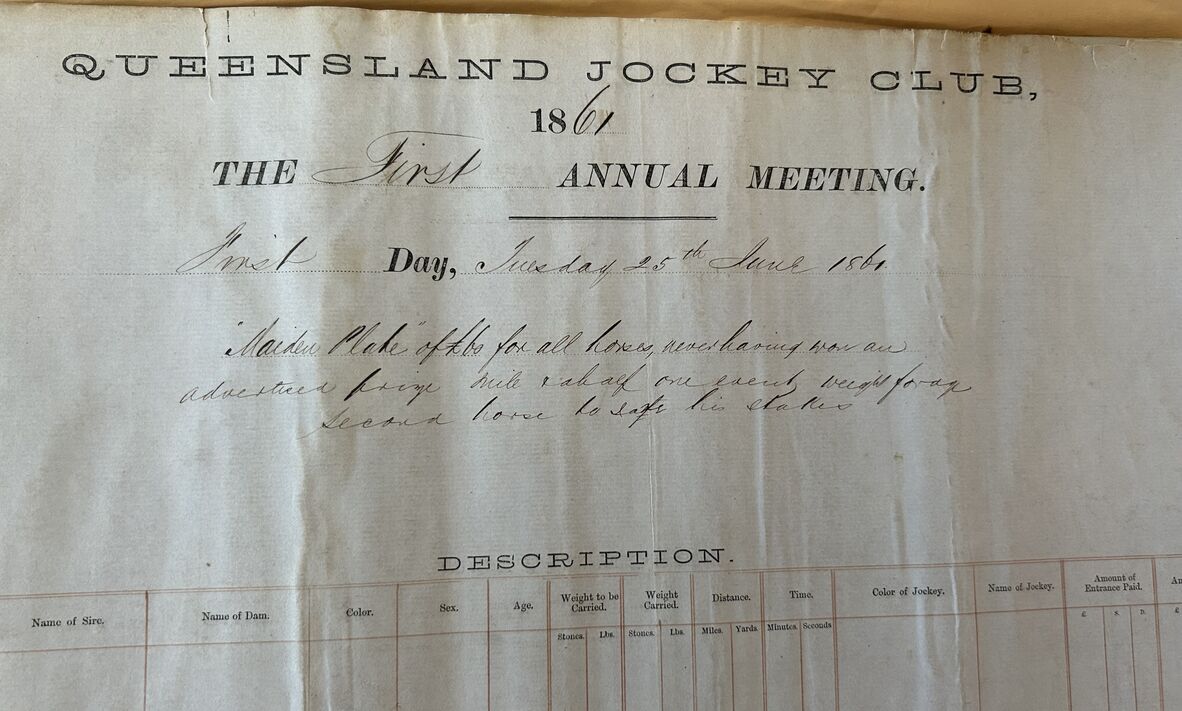 QUEENSLAND JOCKEY CLUB,
1861
THE First ANNUAL MEETING.
First Day, Tuesday 25th June 1861.
"Maiden Plate" of £60 for all horses, never having won an
advertised prize mile & a half one event, weight for age
second horse to save his stakes
DESCRIPTION.
Name of Sire. Name of Dam. Color. Sex. Age. Weight to be Carried. Weight Carried. Distance. Time. Color of Jockey. Name of Jockey. Amount of Entrance Paid.
Stones. Lbs. Stones. Lbs. Miles. Yards Minutes. Seconds £ S. D. £